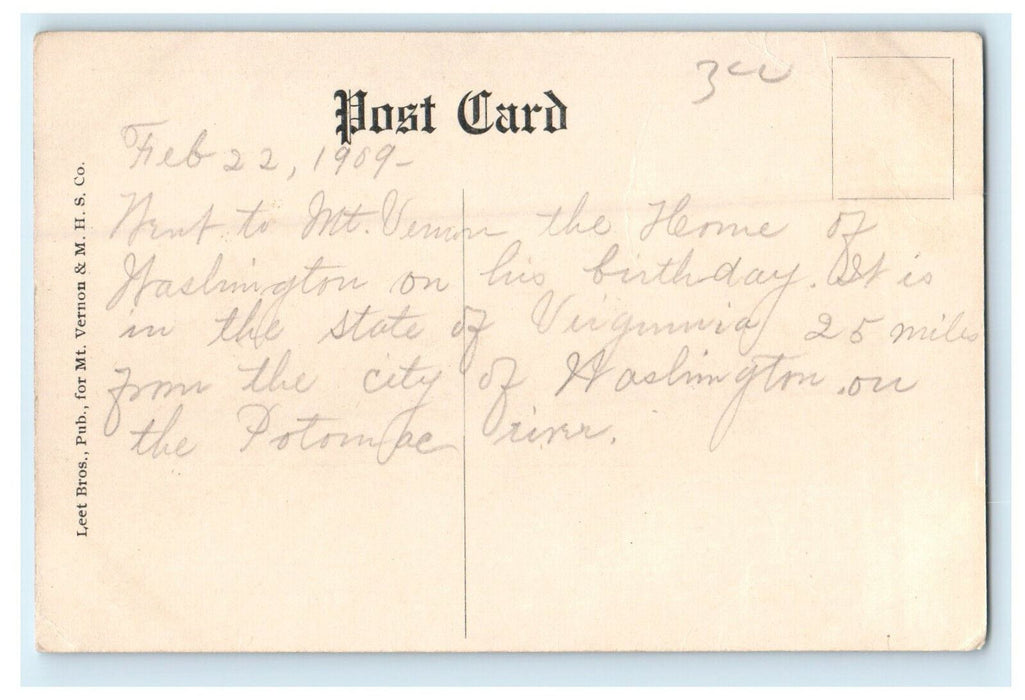 3cc
Post Card
Feb 22, 1909-
Went to Mt. Vernon the Home of
Washington on his birthday. It is
in the state of Virginnia 25 miles
from the city of Washington on
the Potomac river.
Leet Bros., Pub., for Mt. Vernon & M. H. S. Co.